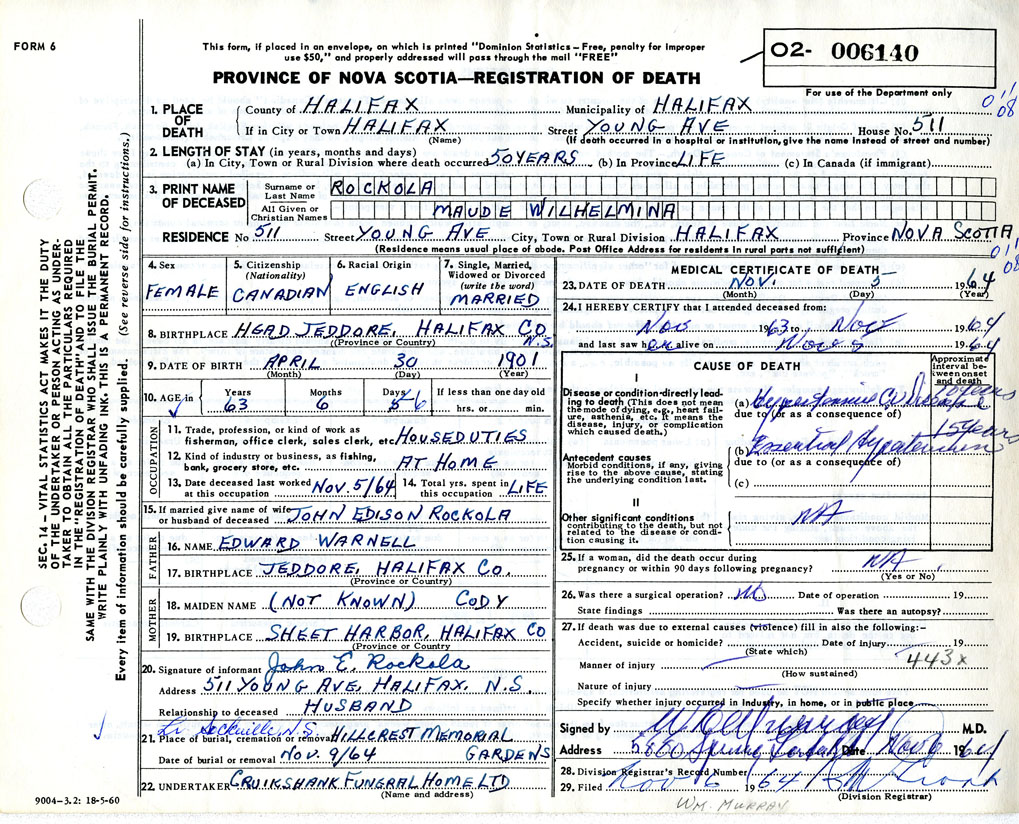 FORM 6
This form, if placed in an envelope, on which is printed "Dominion Statistics – Free, penalty for improper
use $50," and properly addressed will pass through the mail "FREE"
PROVINCE OF NOVA SCOTIA—REGISTRATION OF DEATH
O2- 006140
For use of the Department only
0 11
08
1. PLACE OF DEATH
County of HALIFAX Municipality of HALIFAX
If in City or Town HALIFAX Street YOUNG AVE House No. 511
(Name) (If death occurred in a hospital or institution, give the name instead of street and number)
2. LENGTH OF STAY (in years, months and days)
(a) In City, Town or Rural Division where death occurred 50 YEARS (b) In Province LIFE (c) In Canada (if immigrant)
3. PRINT NAME OF DECEASED
Surname or Last Name ROCKOLA
All Given or Christian Names MAUDE WILHELMINA
RESIDENCE No 511 Street YOUNG AVE City, Town or Rural Division HALIFAX Province NOVA SCOTIA
(Residence means usual place of abode. Post Office Address for residents in rural parts not sufficient)
0 11
08
4. Sex
FEMALE
5. Citizenship
(Nationality)
CANADIAN
6. Racial Origin
ENGLISH
7. Single, Married,
Widowed or Divorced
(write the word)
MARRIED
8. BIRTHPLACE HEAD JEDDORE, HALIFAX CO N.S.
(Province or Country)
9. DATE OF BIRTH APRIL 30 1901
(Month) (Day) (Year)
10. AGE in
Years Months Days If less than one day old
63 6 5 6 hrs. or min.
OCCUPATION
11. Trade, profession, or kind of work as
fisherman, office clerk, sales clerk, etc. HOUSEDUTIES
12. Kind of industry or business, as fishing,
bank, grocery store, etc. AT HOME
13. Date deceased last worked
at this occupation NOV. 5/64
14. Total yrs. spent in
this occupation LIFE
15. If married give name of wife
or husband of deceased JOHN EDISON ROCKOLA
FATHER
16. NAME EDWARD WARNELL
17. BIRTHPLACE JEDDORE, HALIFAX CO.
(Province or Country)
MOTHER
18. MAIDEN NAME (NOT KNOWN) CODY
19. BIRTHPLACE SHEET HARBOR, HALIFAX CO
(Province or Country)
20. Signature of informant John E. Rockola
Address 511 YOUNG AVE, HALIFAX, N.S.
Relationship to deceased HUSBAND
Lr. Sackville N.S.
21. Place of burial, cremation or removal HILLCREST MEMORIAL
Date of burial or removal NOV. 9/64 GARDENS
22. UNDERTAKER CRUIKSHANK FUNERAL HOME LTD
(Name and address)
MEDICAL CERTIFICATE OF DEATH
23. DATE OF DEATH NOV. 5 1964
(Month) (Day) (Year)
24. I HEREBY CERTIFY that I attended deceased from:
Nov 1963 to Nov 1964
and last saw her alive on Nov 5 1964
CAUSE OF DEATH
Approximate
interval be-
tween onset
and death
I
Disease or condition directly lead-
ing to death (This does not mean
the mode of dying, e.g., heart fail-
ure, asthenia, etc. It means the
disease, injury, or complication
which caused death.)
(a) Hypertensive C.V. Disease 10 years
due to (or as a consequence of)
Antecedent causes
Morbid conditions, if any, giving
rise to the above cause, stating
the underlying condition last.
(b) Essential Hypertension 15 years
due to (or as a consequence of)
(c)
II
Other significant conditions
contributing to the death, but not
related to the disease or condi-
tion causing it.
NA
25. If a woman, did the death occur during
pregnancy or within 90 days following pregnancy? NA
(Yes or No)
26. Was there a surgical operation? No Date of operation 19
State findings Was there an autopsy?
27. If death was due to external causes (violence) fill in also the following:–
Accident, suicide or homicide? Date of injury 19
(State which)
443x
Manner of injury
(How sustained)
Nature of injury
Specify whether injury occurred in industry, in home, or in public place
Signed by M.D.
Address 5860 Spring Garden Date Nov 6 1964
28. Division Registrar's Record Number
29. Filed Nov 16 1964
(Division Registrar)
WM. MURRAY
SEC. 14 – VITAL STATISTICS ACT MAKES IT THE DUTY
OF THE UNDERTAKER OR PERSON ACTING AS UNDER-
TAKER TO OBTAIN ALL THE PARTICULARS REQUIRED
IN THE "REGISTRATION OF DEATH" AND TO FILE THE
SAME WITH THE DIVISION REGISTRAR WHO SHALL ISSUE THE BURIAL PERMIT.
WRITE PLAINLY WITH UNFADING INK. THIS IS A PERMANENT RECORD.
Every item of information should be carefully supplied. (See reverse side for instructions.)
9004-3.2: 18-5-60